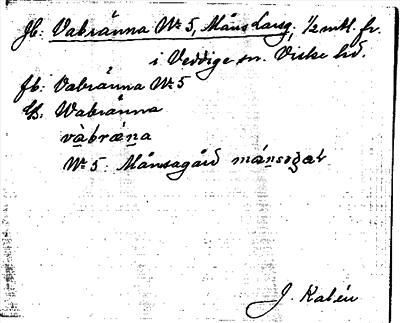 Jb: Vabränna No 5, Måns Larsg, 1/2 mtl. fr.
i Veddige sn. Viske hd.
fb: Vabränna No 5
Gb. Wabränna
vàbræ̀na
No 5. Månsagård mánsɷgaʈ
J. Kalén